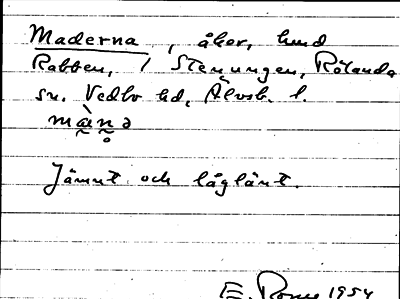 Maderna, åker, hmd
Rabben, 1 Stenungen, Rölanda
sn. Vedbo hd, Älvsb. l.
mànə
Jämnt och låglänt.
E. 1954